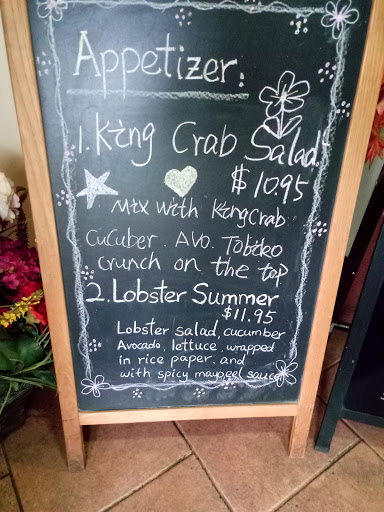 Appetizer:
1. King Crab Salad
$10.95
Mix with KingCrab
CuCuber. AVO. Tobiko
Crunch on the top
2. Lobster Summer
$11.95
Lobster salad, cucumber
Avocado, lettuce, wrapped
in rice paper. and
with spicy maypeel sauce